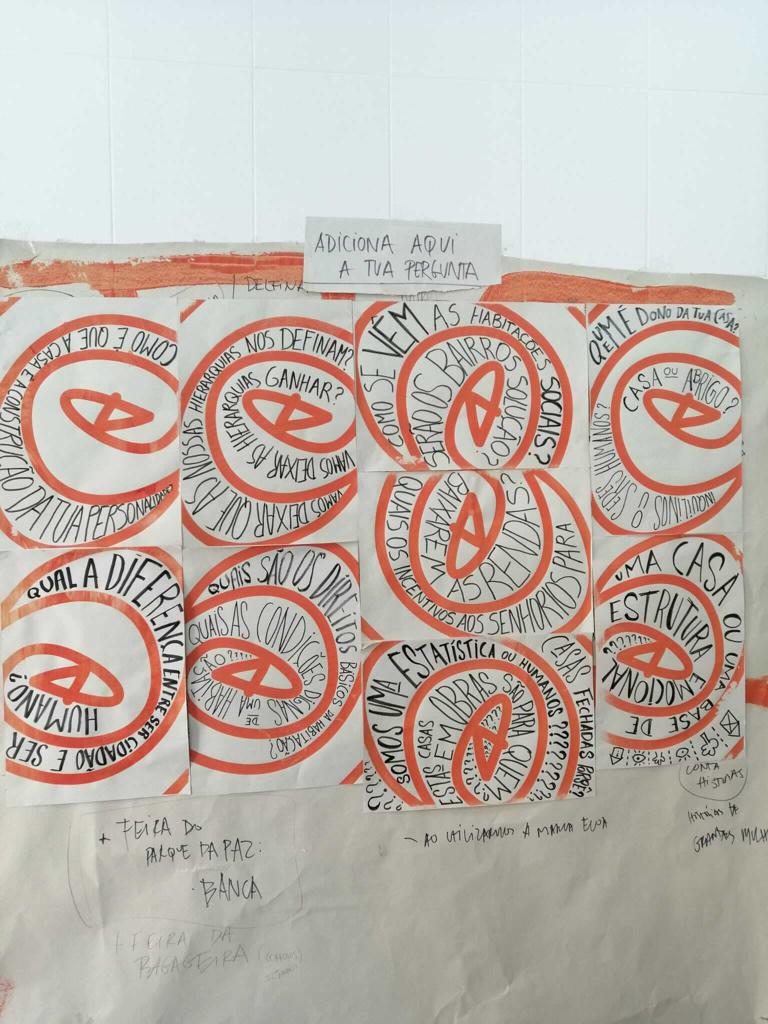 ADICIONA AQUI
A TUA PERGUNTA
DELFINA
COMO É QUE A CASA É A CONSTRUÇÃO DA TUA PERSONALIDADE?
VAMOS DEIXAR QUE AS NOSSAS HIERARQUIAS NOS DEFINAM?
VAMOS DEIXAR AS HIERARQUIAS GANHAR?
COMO SE VÊM AS HABITAÇÕES SOCIAIS?
SERÃO OS BAIRROS SOLUÇÃO?
QUEM É DONO DA TUA CASA?
CASA OU ABRIGO?
INQUILINOS O SERES HUMANOS?
QUAIS OS INCENTIVOS AOS SENHORIOS PARA
BAIXAREM AS RENDAS?
QUAL A DIFERENÇA ENTRE SER CIDADÃO E SER
HUMANO?
QUAIS SÃO OS DIREITOS BÁSICOS DA HABITAÇÃO?
QUAIS AS CONDIÇÕES DIGNAS DE UMA HABITAÇÃO?????
SOMOS UMA ESTATÍSTICA OU HUMANOS????????
CASAS FECHADAS
CASAS EM OBRAS SÃO PARA QUEM
UMA CASA OU UMA BASE DE
ESTRUTURA EMOCIONAL
??????
+ FEIRA DO
PARQUE DA PAZ:
· BANCA
+ FEIRA DA
BAGAGEIRA
- AO UTILIZARMOS A
CONTA
HISTÓRIAS
HISTÓRIAS DE
GRANDES MULH